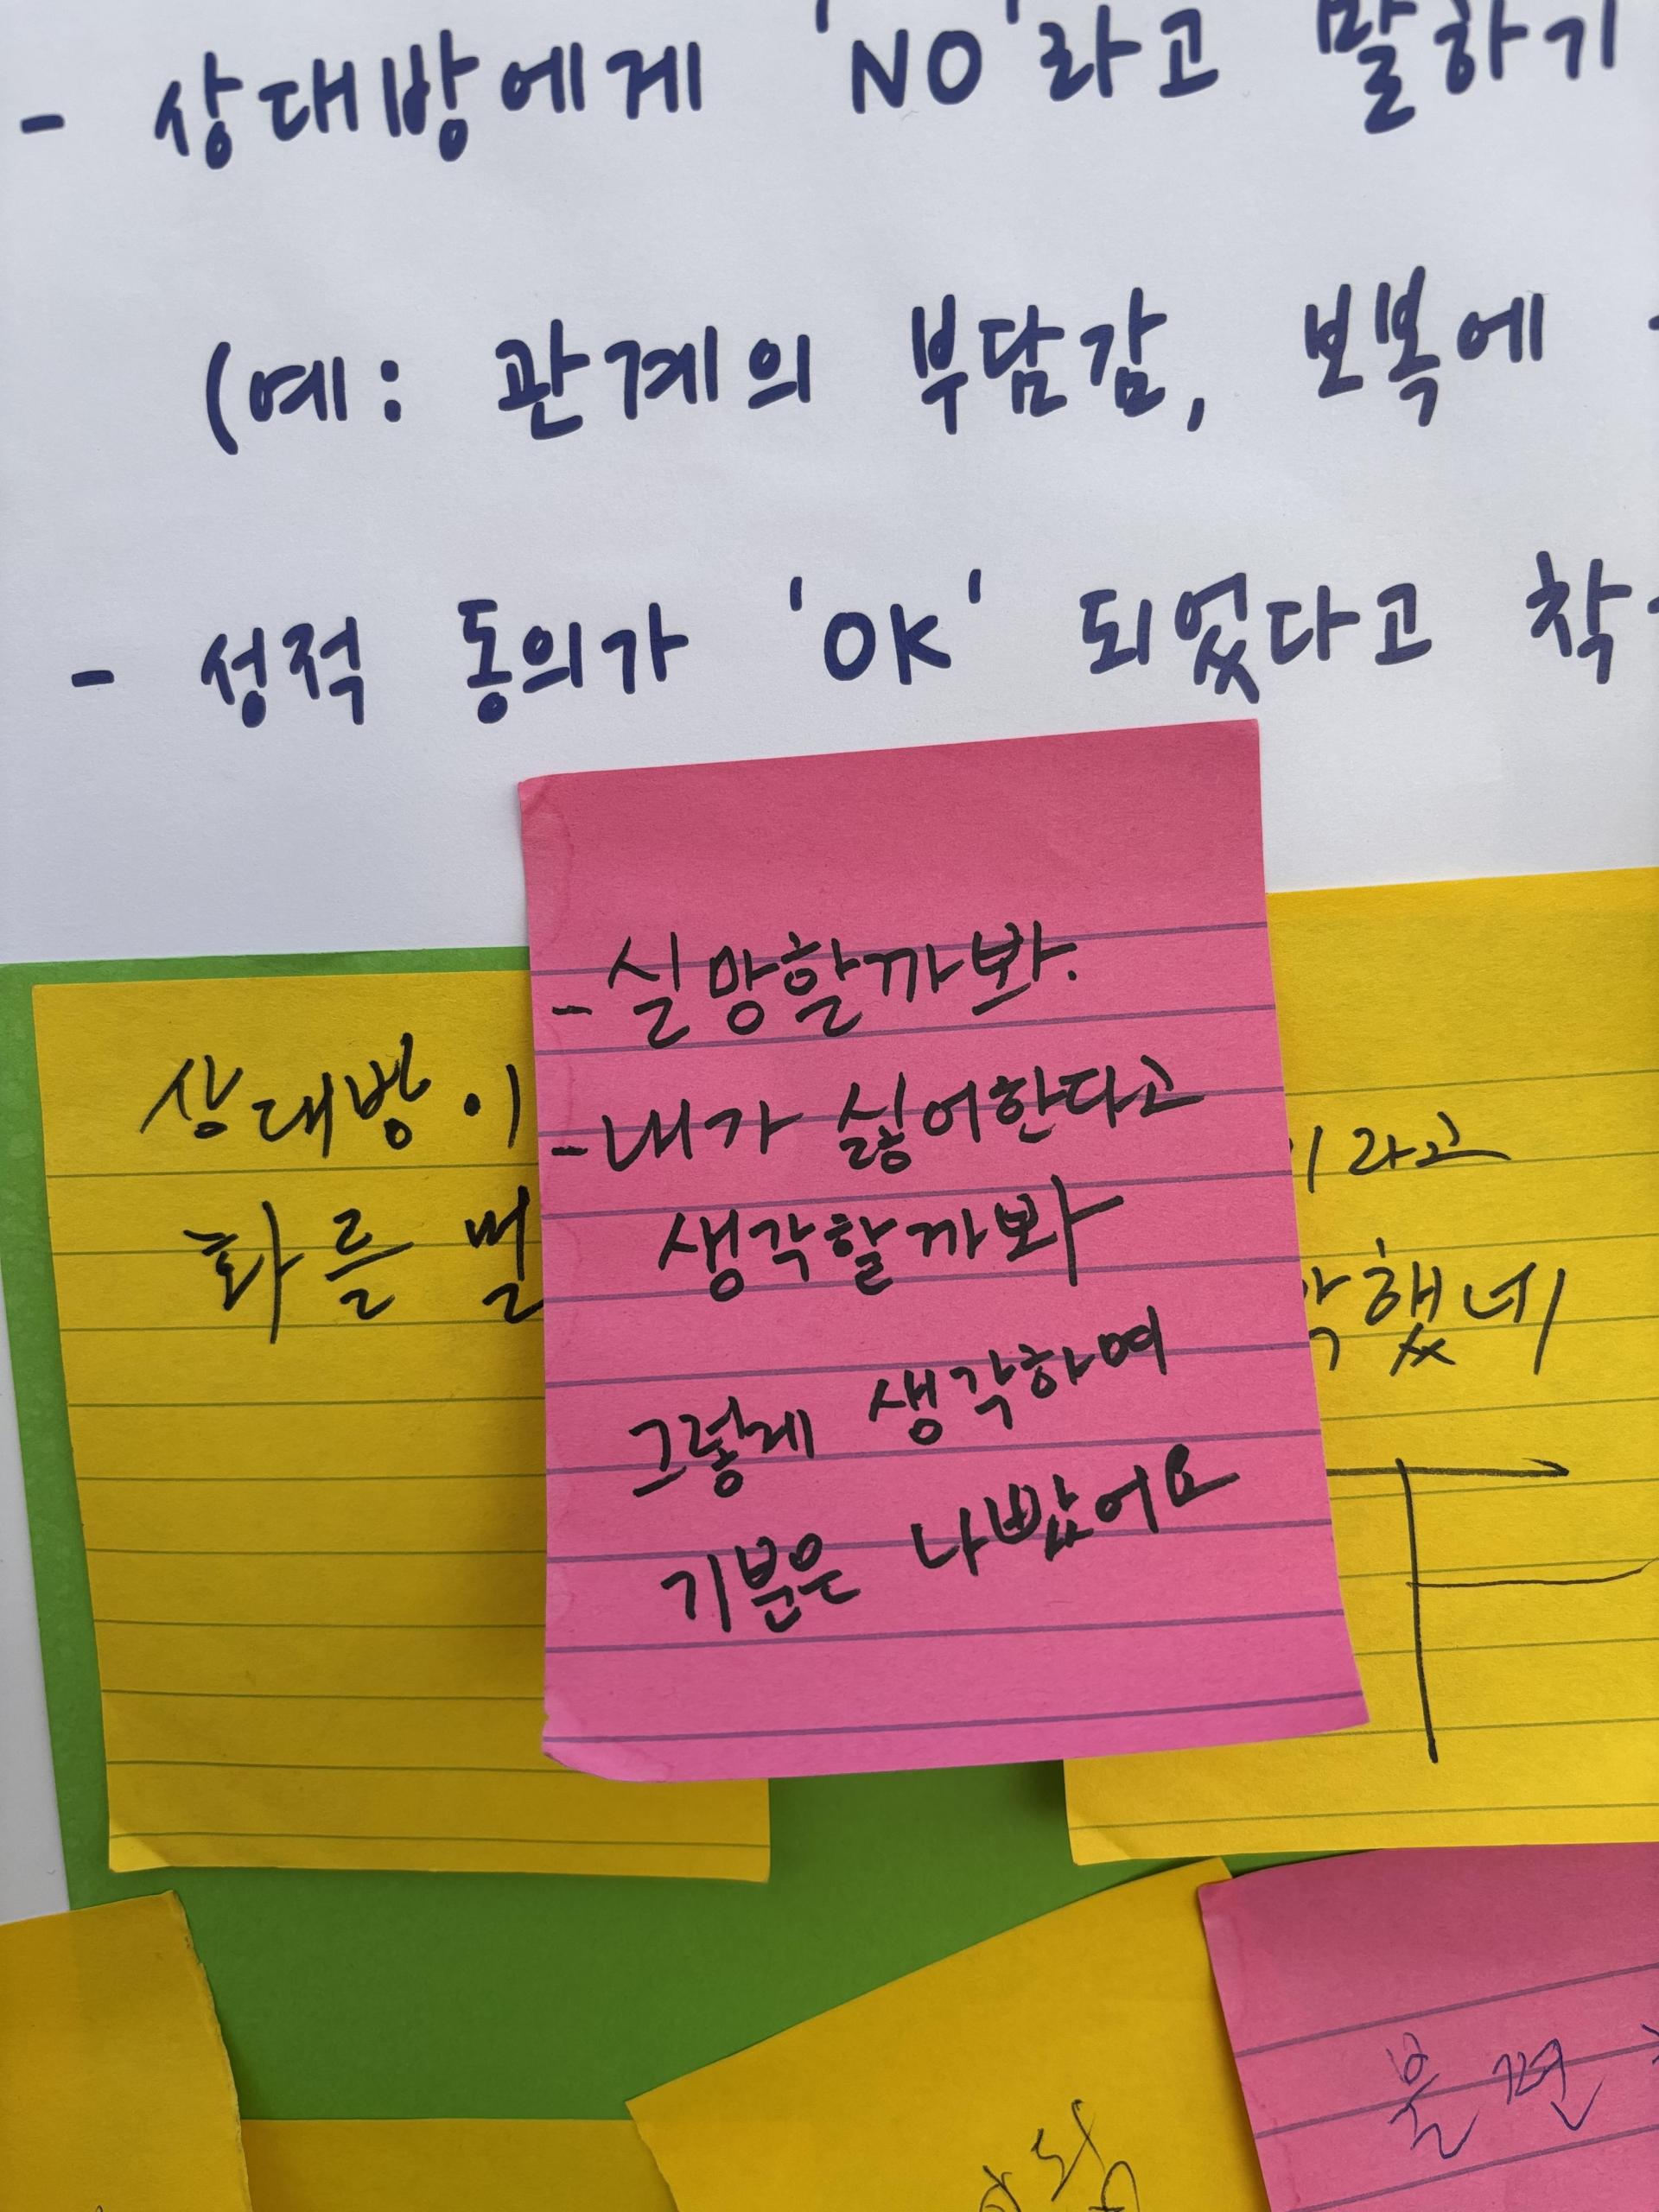 - 상대방에게 'NO'라고 말하기
(예: 관계의 부담감, 보복에
- 성적 동의가 'OK' 되었다고
- 실망할까봐.
- 내가 싫어한다고
생각할까봐
그렇게 생각하며
기분은 나빴어요
상대방이
화를
이라고
했네
불편